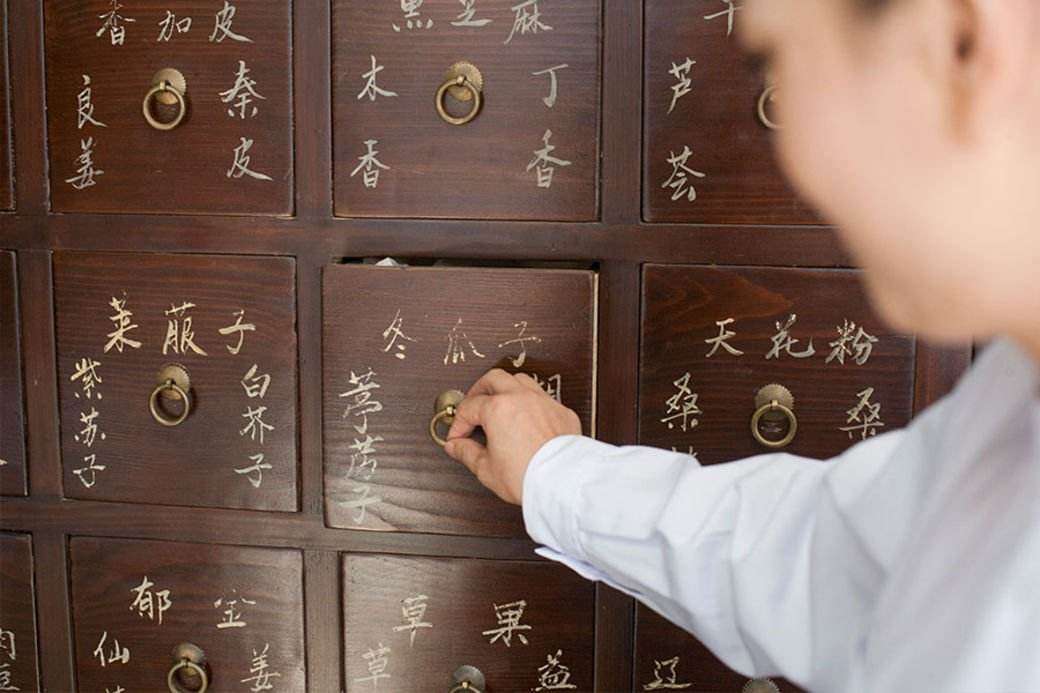 香加皮
良姜
秦皮
黑芝麻
木香
丁香
芦荟
莱菔子
紫苏子
白芥子
冬瓜子
葶苈子
天花粉
桑
桑
肉
郁金
仙
姜
草果
草
益
辽